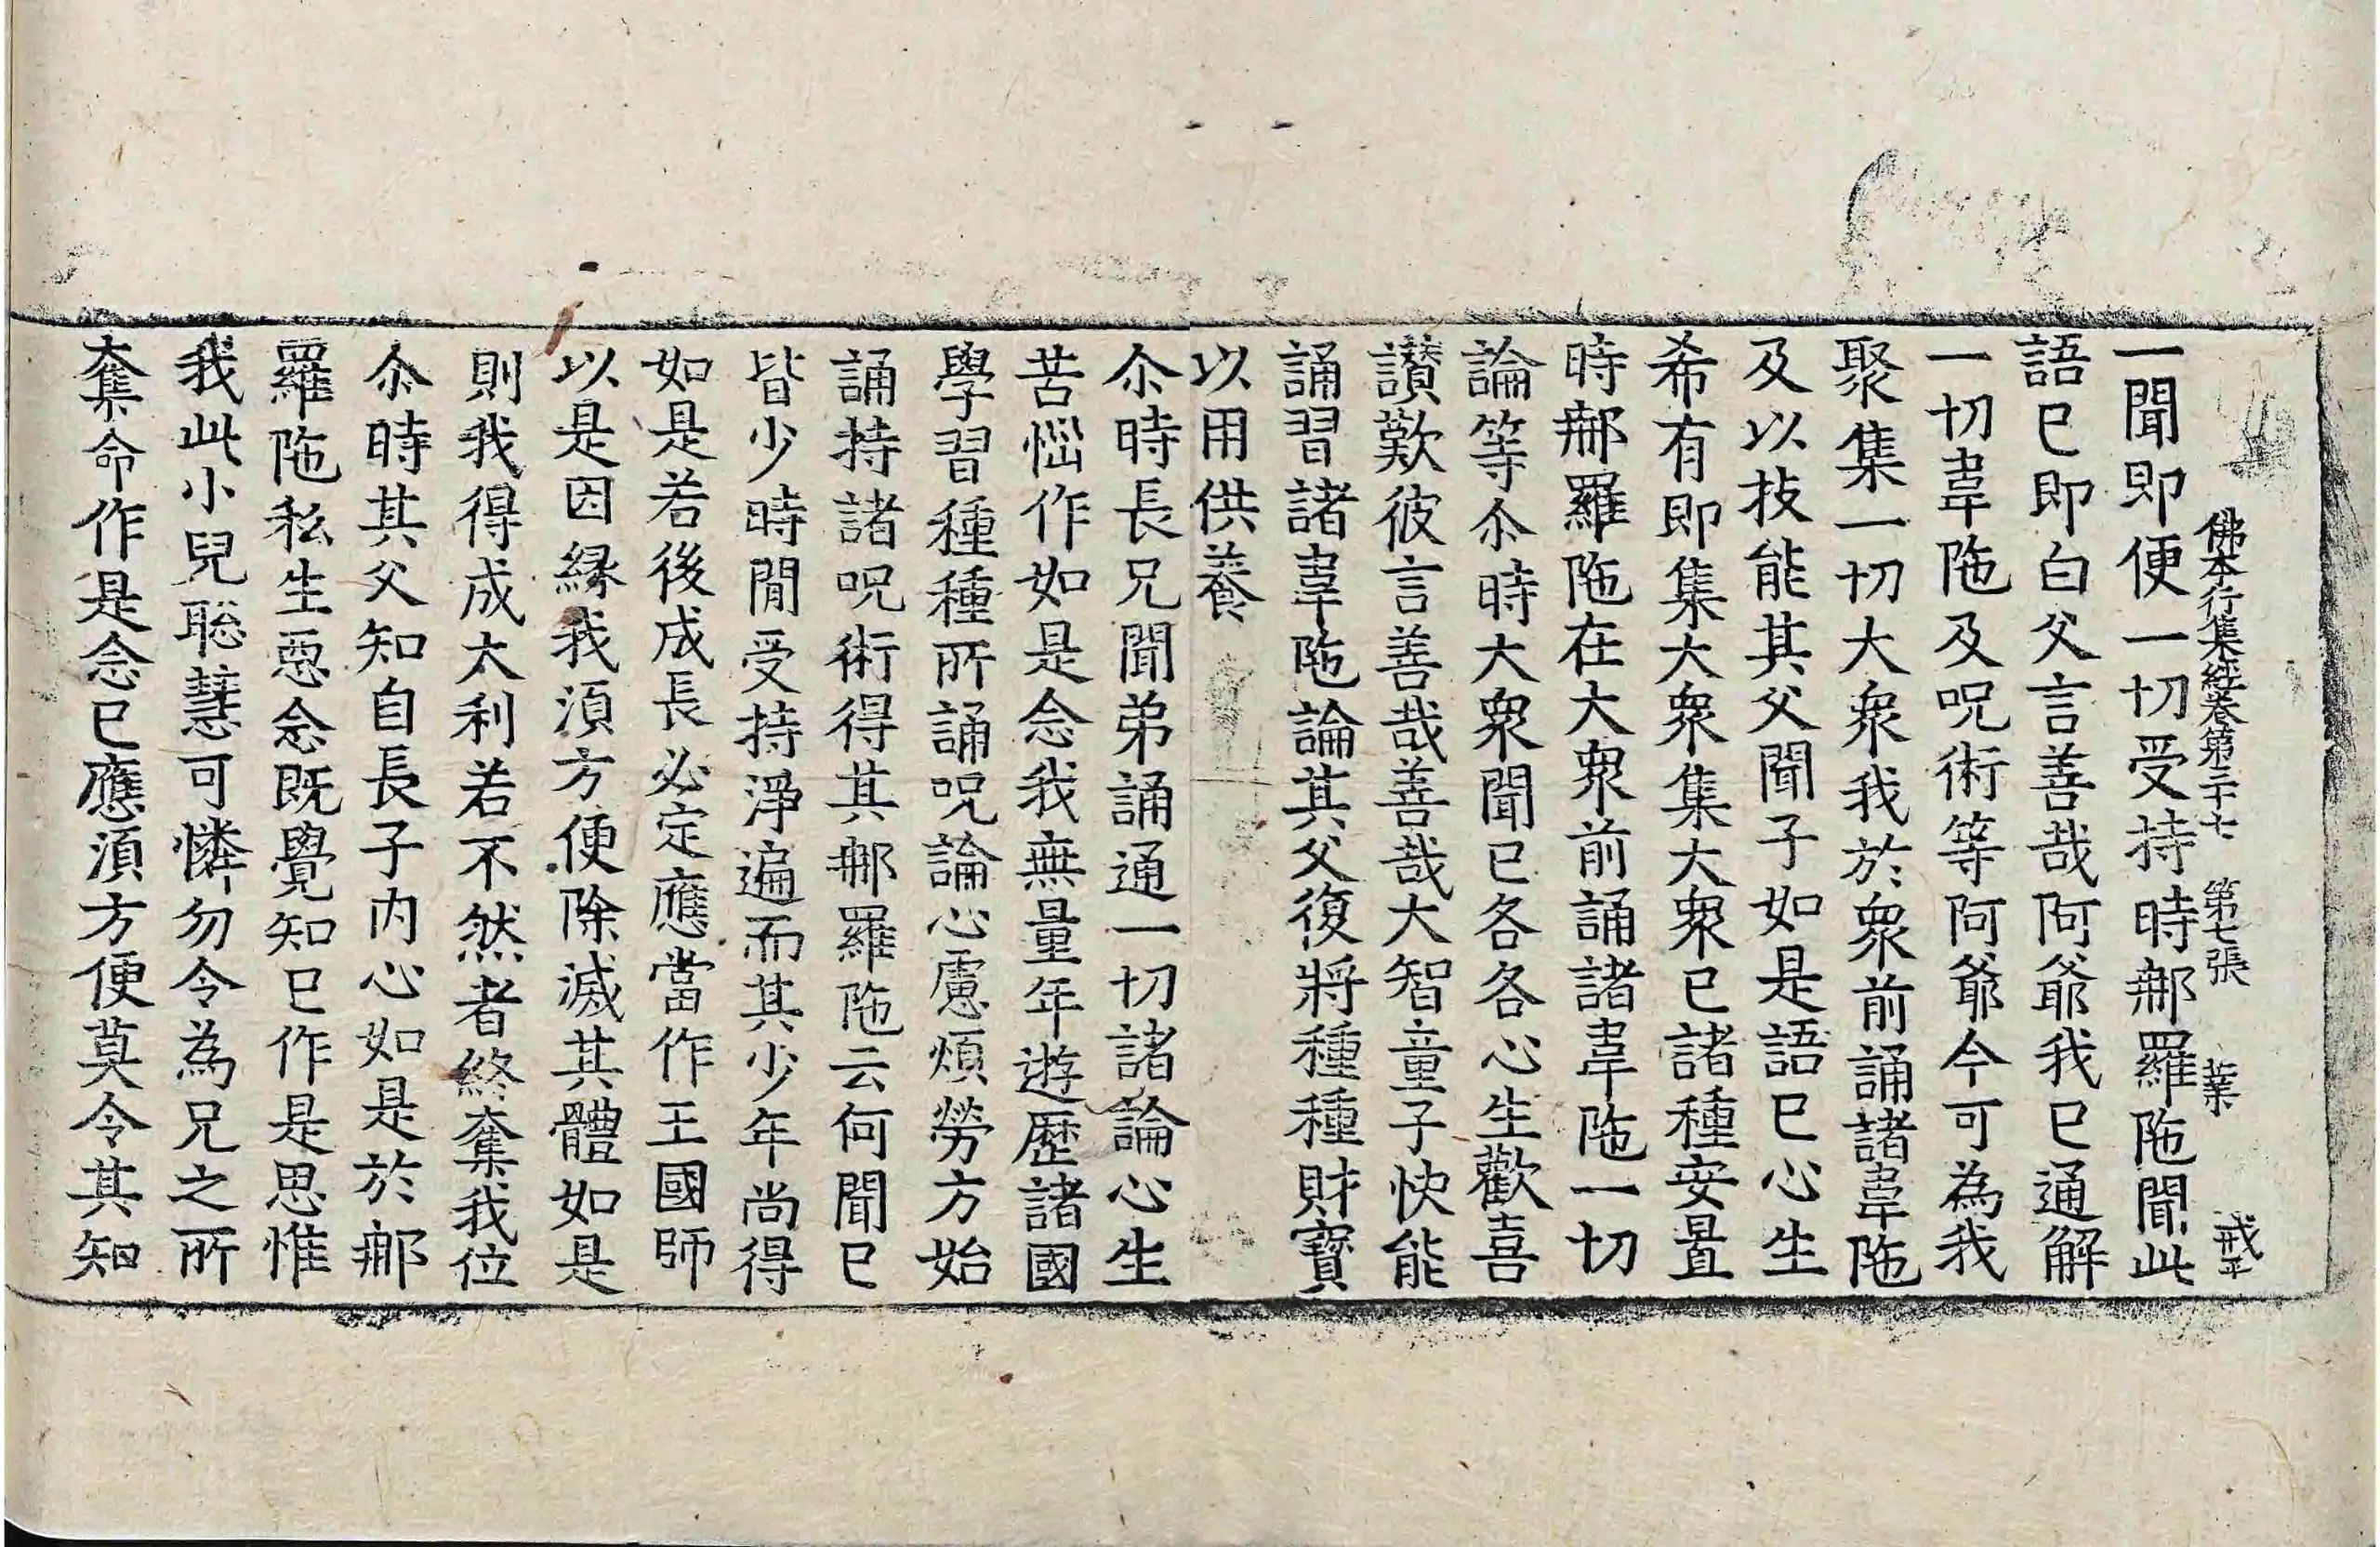 佛本行集經卷第三十七 第七張 業 戒平
一聞即便一切受持時那羅陁聞此
語已即白父言善哉阿爺我已通解
一切韋陁及呪術等阿爺今可為我
聚集一切大衆我於衆前誦諸韋陁
及以技能其父聞子如是語已心生
希有即集大衆集大衆已諸種安置
時那羅陁在大衆前誦諸韋陁一切
論等尒時大衆聞已各各心生歡喜
讃歎彼言善哉善哉大智童子快能
誦習諸韋陁論其父復將種種財寶
以用供養
尒時長兄聞弟誦通一切諸論心生
苦惱作如是念我無量年遊歷諸國
學習種種所誦呪論心慮煩勞方始
誦持諸呪術得其那羅陁云何聞已
皆少時間受持淨遍而其少年尚得
如是若後成長必定應當作王國師
以是因緣我湏方便除滅其體如是
則我得成大利若不然者終奪我位
尒時其父知自長子内心如是於那
羅陁私生惡念既覺知已作是思惟
我此小兒聡慧可憐勿令為兄之所
奪命作是念已應湏方便莫令其知